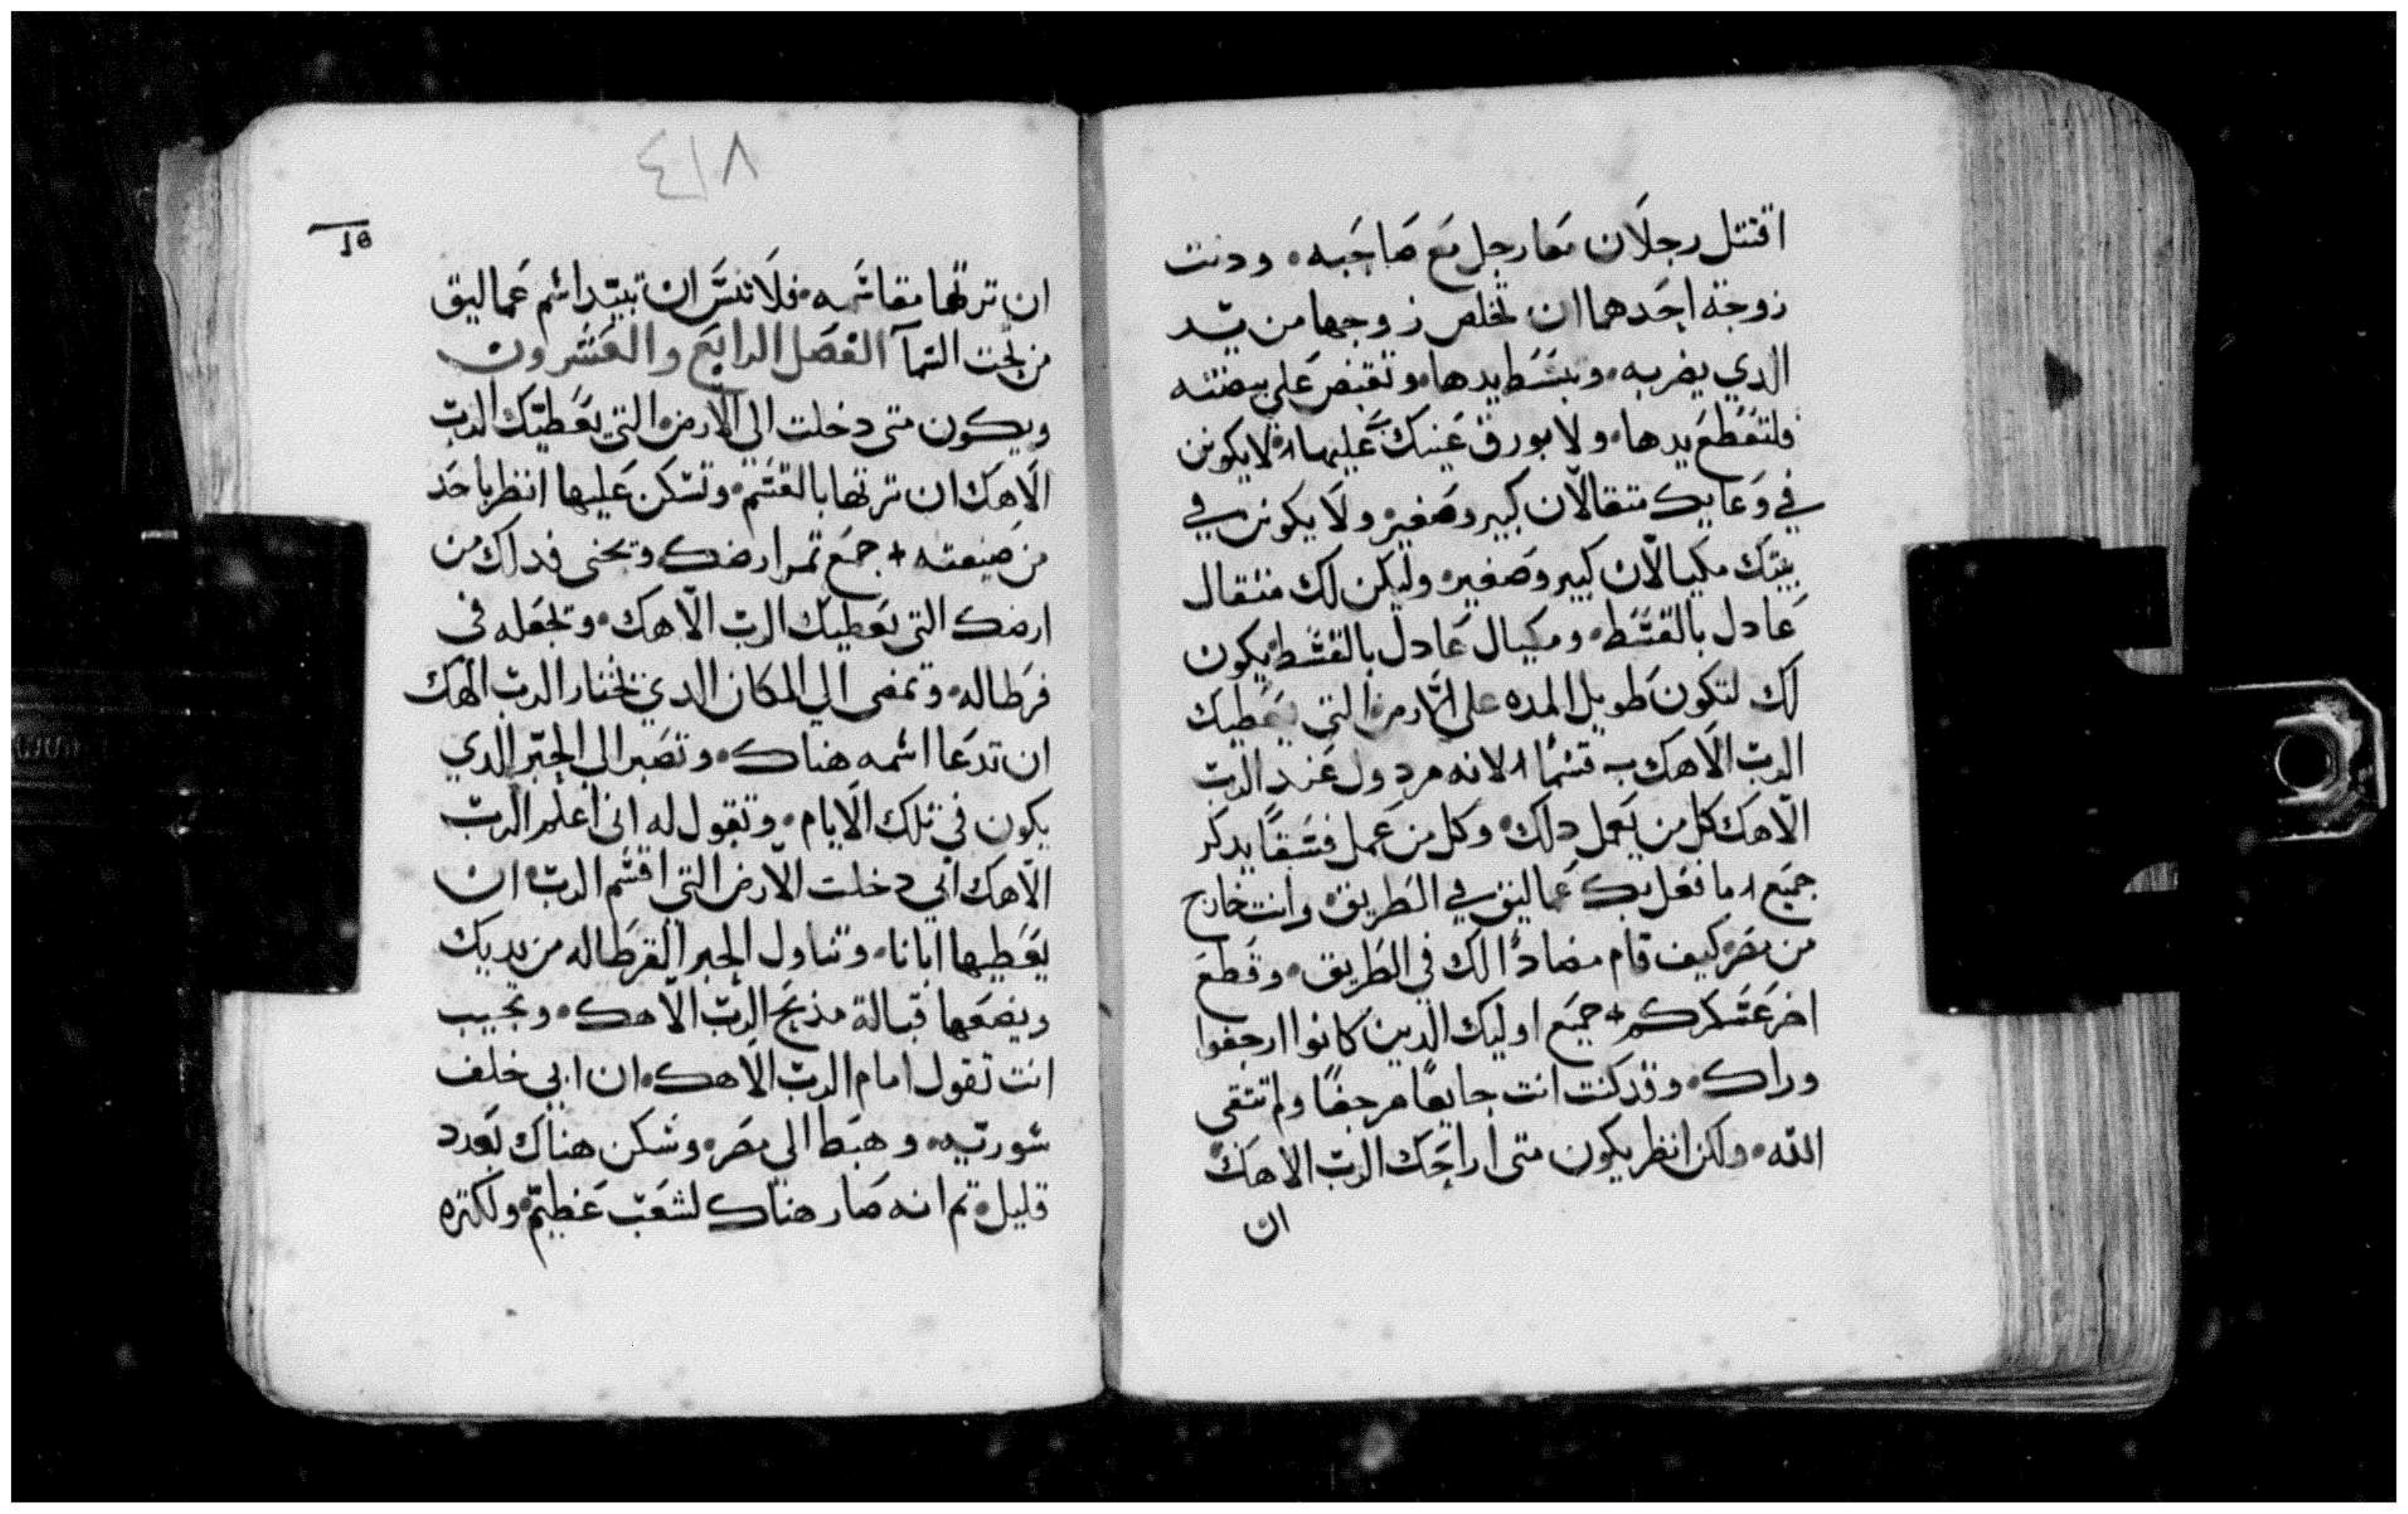 اقتتل رجلان معا رجل مع صاحبه • ودنت
زوجة احدهما ان تخلص زوجها من يد
الدي يضربه • وبسط يدها • وتقبض علي بيضته
فلتقطع يدها • ولا عينك عليها • لا يكونن
في وعايك متقالان كبير وصغير • ولا يكونن في
بيتك مكيالان كبير وصغير • وليكن لك متقال
عادل بالقسط • ومكيال عادل بالقسط يكون
لك لتكون طويل المده علي الارض التي يعطيك
الرب الاهك به قسما • لانه مردول عند الرب
الاهك كل من يعمل دلك • وكل من عمل فسقا يدكر
جميع ما فعل بك عماليق في الطريق • وانت خارج
من مصر كيف قام مضادا لك في الطريق • وقطع
اخر عسكركم • جميع اوليك الدين كانوا ارجفوا
وراك • وقد كنت انت جايعا مرجفا ولم تتقي
الله • ولكن انظر يكون متي اراحك الرب الاهك
ان
٤١٨
ان ترتها مقاسمه • فلا تنس ان تبيد اسم عماليق
من تحت السما الفصل الرابع والعشرون
ويكون متى دخلت الي الارض التي يعطيك الرب
الاهك ان ترتها بالقسم • وتسكن عليها انظر باحد
من صيغته • جمع تمر ارضك وتحني فداك من
ارضك التي يعطيك الرب الاهك • وتجعله في
فرطاله • وتمضي الي المكان الدي يختار الرب الهك
ان تدعا اسمه هناك • وتصير الي الحبر الدي
يكون في تلك الايام • وتقول له اني اعلم الرب
الاهك اني دخلت الارض التي اقسم الرب ان
يعطيها ابانا • وتناول الحبر القرطاله من يديك
ويضعها قبالة مذبح الرب الاهك • وتجيب
انت تقول امام الرب الاهك • ان ابي خلف
سوريه • وهبط الي مصر • وسكن هناك بعدد
قليل • تم انه صار هناك لشعب عظيم • ولكتره